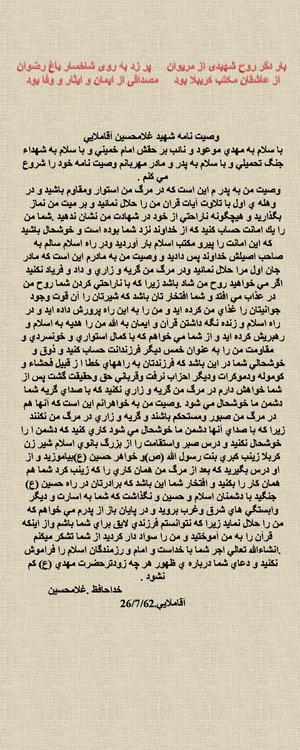 بار دگر روح شهیدی از مریوان    پر زد به روی شاخسار باغ رضوان
از عاشقان مکتب کربلا بود    مصداقی از ایمان و ایثار و وفا بود
وصیت نامه شهید غلامحسین آقاملایي
با سلام به مهدي موعود و نائب بر حقش امام خمیني و با سلام به شهداء
جنگ تحمیلي و با سلام به پدر و مادر مهربانم وصیت نامه خود را شروع
مي کنم .
وصیت من به پدر م این است که در مرگ من استوار ومقاوم باشید و در
وهله ي اول با تلاوت آیات قران من را حلال نمائید و بر میت من نماز
بگذارید و هیچگونه ناراحتي از خود در شهادت من نشان ندهید .شما من
را یك امانت حساب کنید که از خداوند نزد شما بوده است و خوشحال باشید
که این امانت را پیرو مکتب اسلام بار آوردید ودر راه اسلام سالم به
صاحب اصیلش خداوند پس دادید و وصیت من به مادرم این است که مادر
جان اول مرا حلال نمائید ودر مرگ من گریه و زاري و داد و فریاد نکنید
اگر مي خواهید روح من شاد باشد زیرا که با ناراحتي کردن شما روح من
در عذاب مي افتد و شما افتخار تان باشد که شیرتان را آن قوت وجود
جوانیتان را غذاي من کرده اید و من را به این راه پرورش داده اید و در
راه اسلام و زنده نگه داشتن قرآن و ایمان به الله من را هدیه به اسلام و
رهبریش کرده اید و از شما مي خواهم که با کمال استواري و خونسردي و
مقاومت من را به عنوان خمس دیگر فرزندانت حساب کنید و ذوق و
خوشحالي شما در این باشد که فرزندتان به راههاي خطا ا ز قبیل فحشاء و
کومونه ودموکرات ودیگر احزاب نرفت وقرباني حق وحقیقت گشت پس از
شما خواهش دارم در مرگ من گریه و زاري نکنید که با صداي گریه شما
دشمن ما خوشحال مي شود .وصیت من به خواهرانم این است که آنها هم
در مرگ من صبور ومستحکم باشند و گریه و زاري در مرگ من نکنند
زیرا که با صداي آنها دشمن ما خوشحال مي شود کاري کنید که دشمن ا را
خوشحال نکنید و درس صبر واستقامت را از بزرگ بانوي اسلام شیر زن
کربلا زینب کبري بنت رسول الله (ص)و خواهر حسین (ع)بیاموزید و از
او درس بگیرید که بعد از مرگ من همان کاري را که زینب کرد شما هم
همان کار را بکنید و افتخار شما این باشد که برادرتان در راه حسین (ع)
جنگید با دشمنان اسلام و حسین و نگذاشت که شما به اسارت و دیگر
وابستگي هاي شرق وغرب بروید و در پایان باز از پدرم مي خواهم که
من را حلال نماید زیرا که نتوانستم فرزندي لایق براي شما باشم واز اینکه
قرآن را به من آموختید و من را سواد دار کردید از شما تشکر میکنم
.انشاءالله تعالي اجر شما با خداست و امام و رزمندگان اسلام را فراموش
نکنید و دعاي شما درباره ي ظهور هر چه زودترحضرت مهدي (ع) کم
نشود .
خداحافظ .غلامحسین
آقاملایي.26/7/62